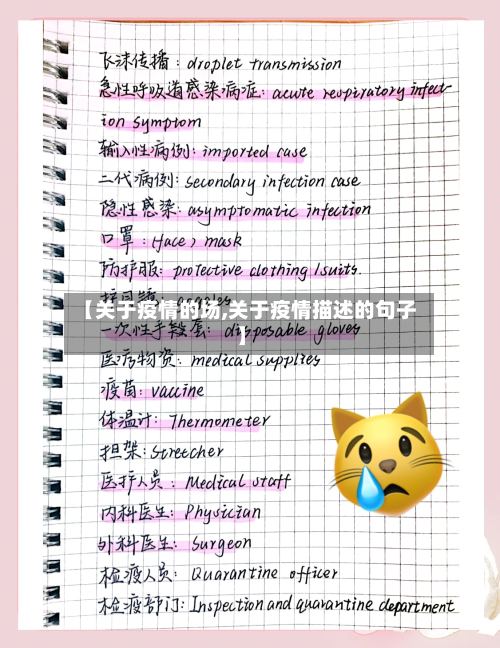 飞沫传播：droplet transmission
急性呼吸道感染病症：acute respiratory infect
ion symptom
输入性病例：imported case
二代病例：secondary infection case
隐性感染：asymptomatic infection
口罩：(face) mask
防护服：protective clothing/suits.
护目镜：goggles
【关于疫情的场,关于疫情描述的句子
】
一次性手套：disposable gloves
医疗物资：medical supplies
疫苗：vaccine
体温计：Thermometer
担架：Stretcher
医护人员：Medical staff
内科医生：Physician
外科医生：Surgeon
检疫人员：Quarantine officer
检疫部门：Inspection and quarantine department